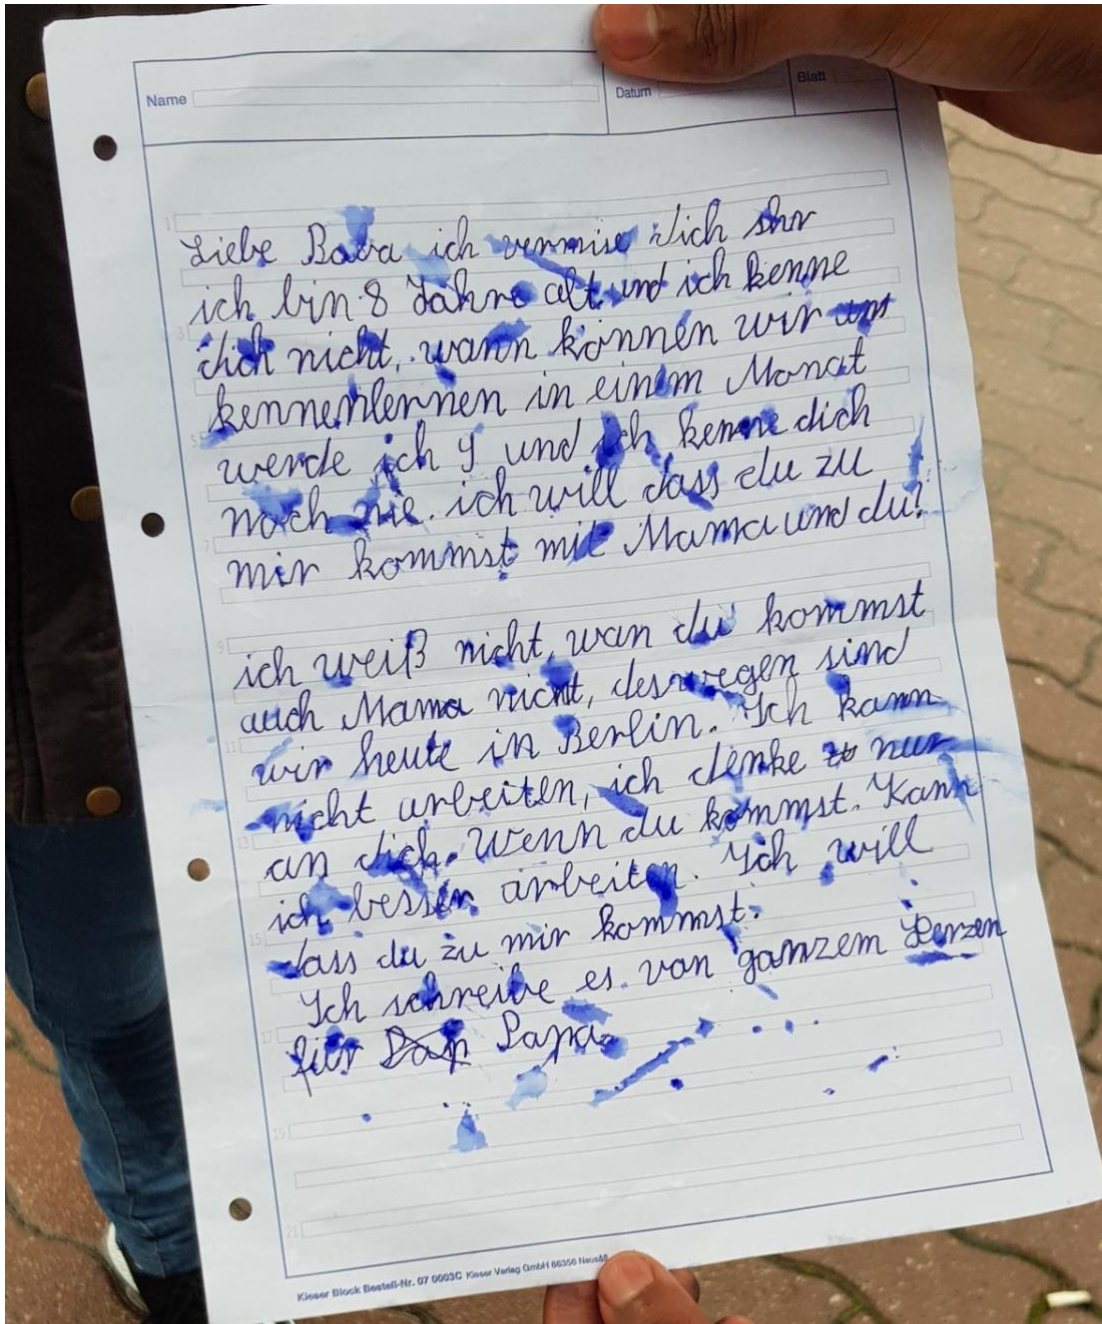 Name
Datum
Blatt
Liebe Baba ich vermise dich shr
ich bin 8 Jahre alt und ich kenne
dich nicht, wann können wir uns
kennenlernen in einem Monat
werde ich 9 und ich kenne dich
noch nie. ich will dass du zu
mir kommst mit Mama und du?
ich weiß nicht, wan du kommst
auch Mama nicht, deswegen sind
wir heute in Berlin. Ich kann
nicht arbeiten, ich denke nur
an dich. Wenn du kommst. Kann
ich besser arbeiten. Ich will
dass du zu mir kommst.
Ich schreibe es von ganzem Herzen
für Pap Papa
Kieser Block Bestell-Nr. 07 0003C Kieser Verlag GmbH 86356 Neusäß